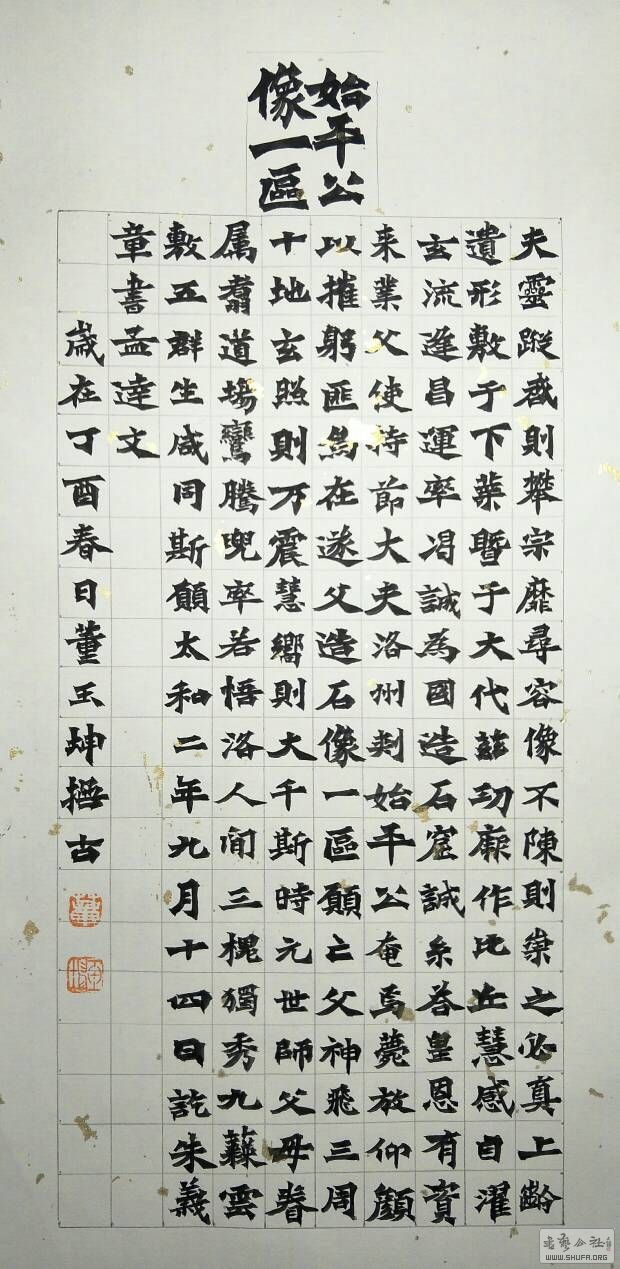 始平公
像一區
夫靈蹤啓則攀宗靡尋容像不陳則崇之必真上齡
遺形敷于下葉暨于大代茲功厥作比丘慧感自濯
玄流逢昌運率渴誠為國造石窟誠系答皇恩有資
来業父使持節大夫洛州刾始平公奄焉薨放仰顏
以摧躬匪烏在遂父造石像一區願亡父神飛三周
十地玄照則万震慧嚮則大千斯時元世師父母眷
属翥道場鸞騰兜率若悟洛人間三槐獨秀九蕀雲
敷五群生咸同斯願太和二年九月十四日訖朱義
章書孟達文
歲在丁酉春日董玉坤撫古
WWW.SHUFA.ORG